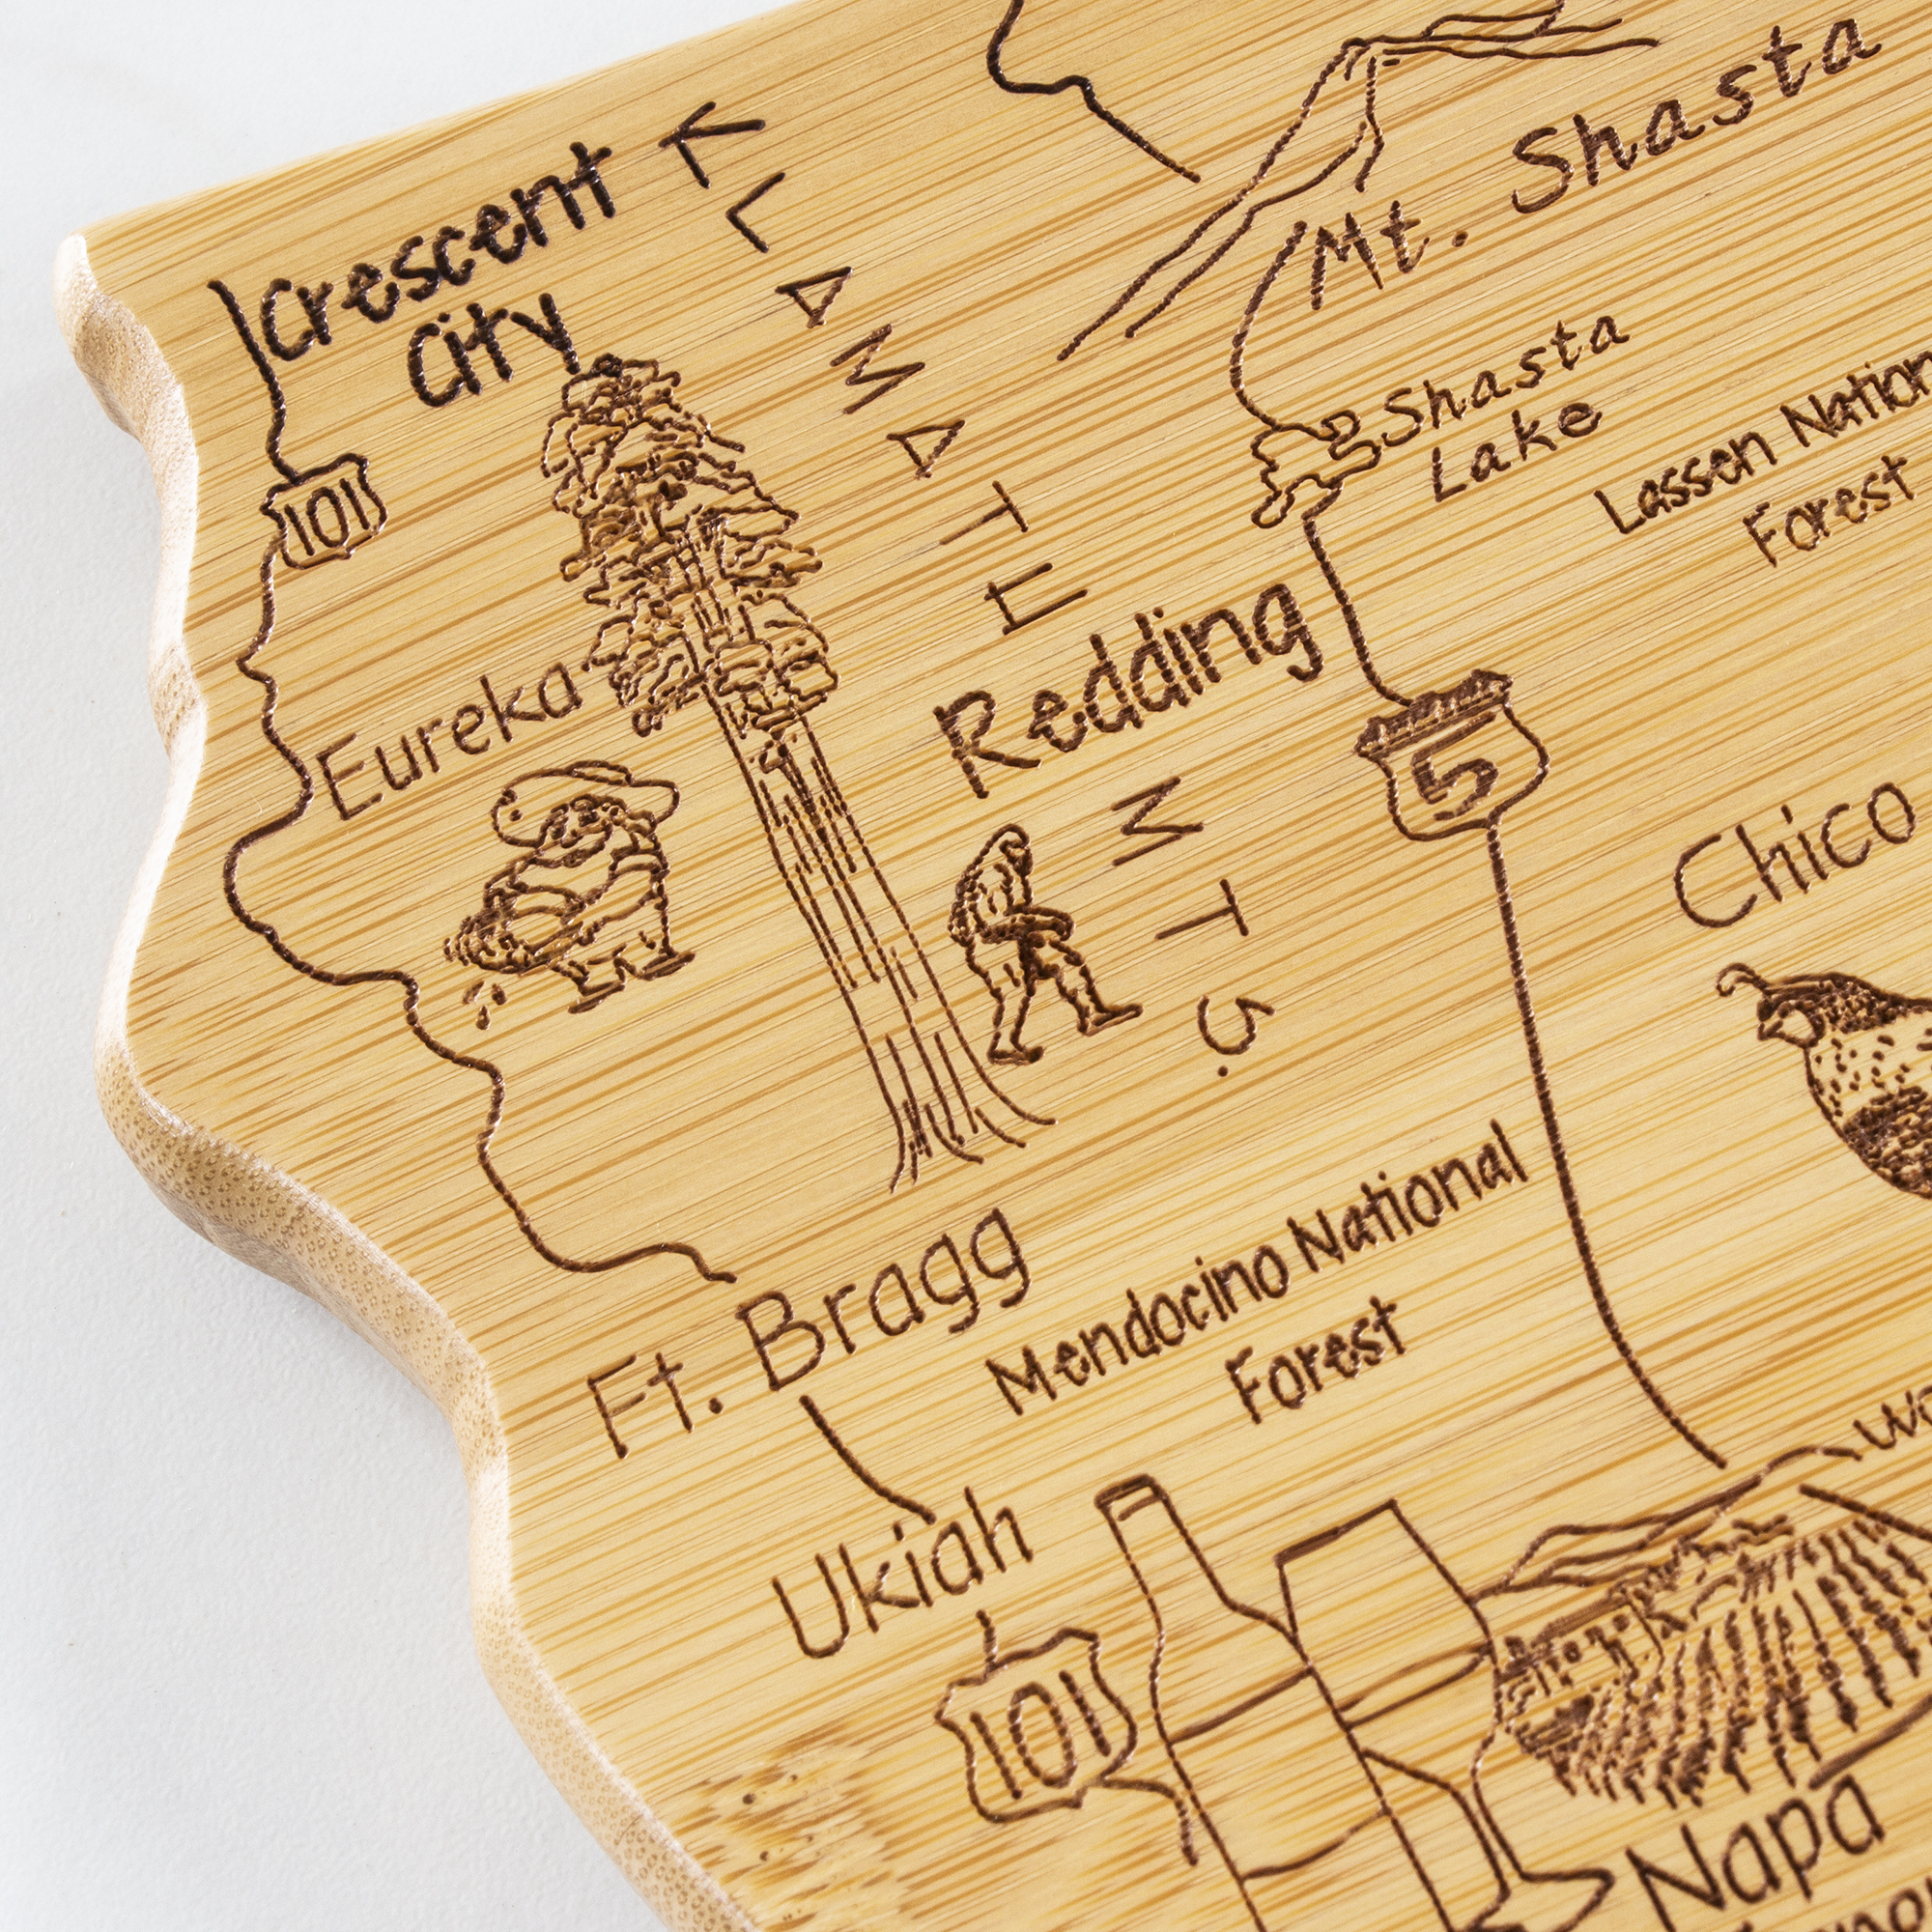 Crescent
City
KLAMATH
MTS.
Mt. Shasta
Shasta
Lake
Lassen Nation
Forest
101
Eureka
Redding
5
Chico
Ft. Bragg
Mendocino National
Forest
Ukiah
101
Napa